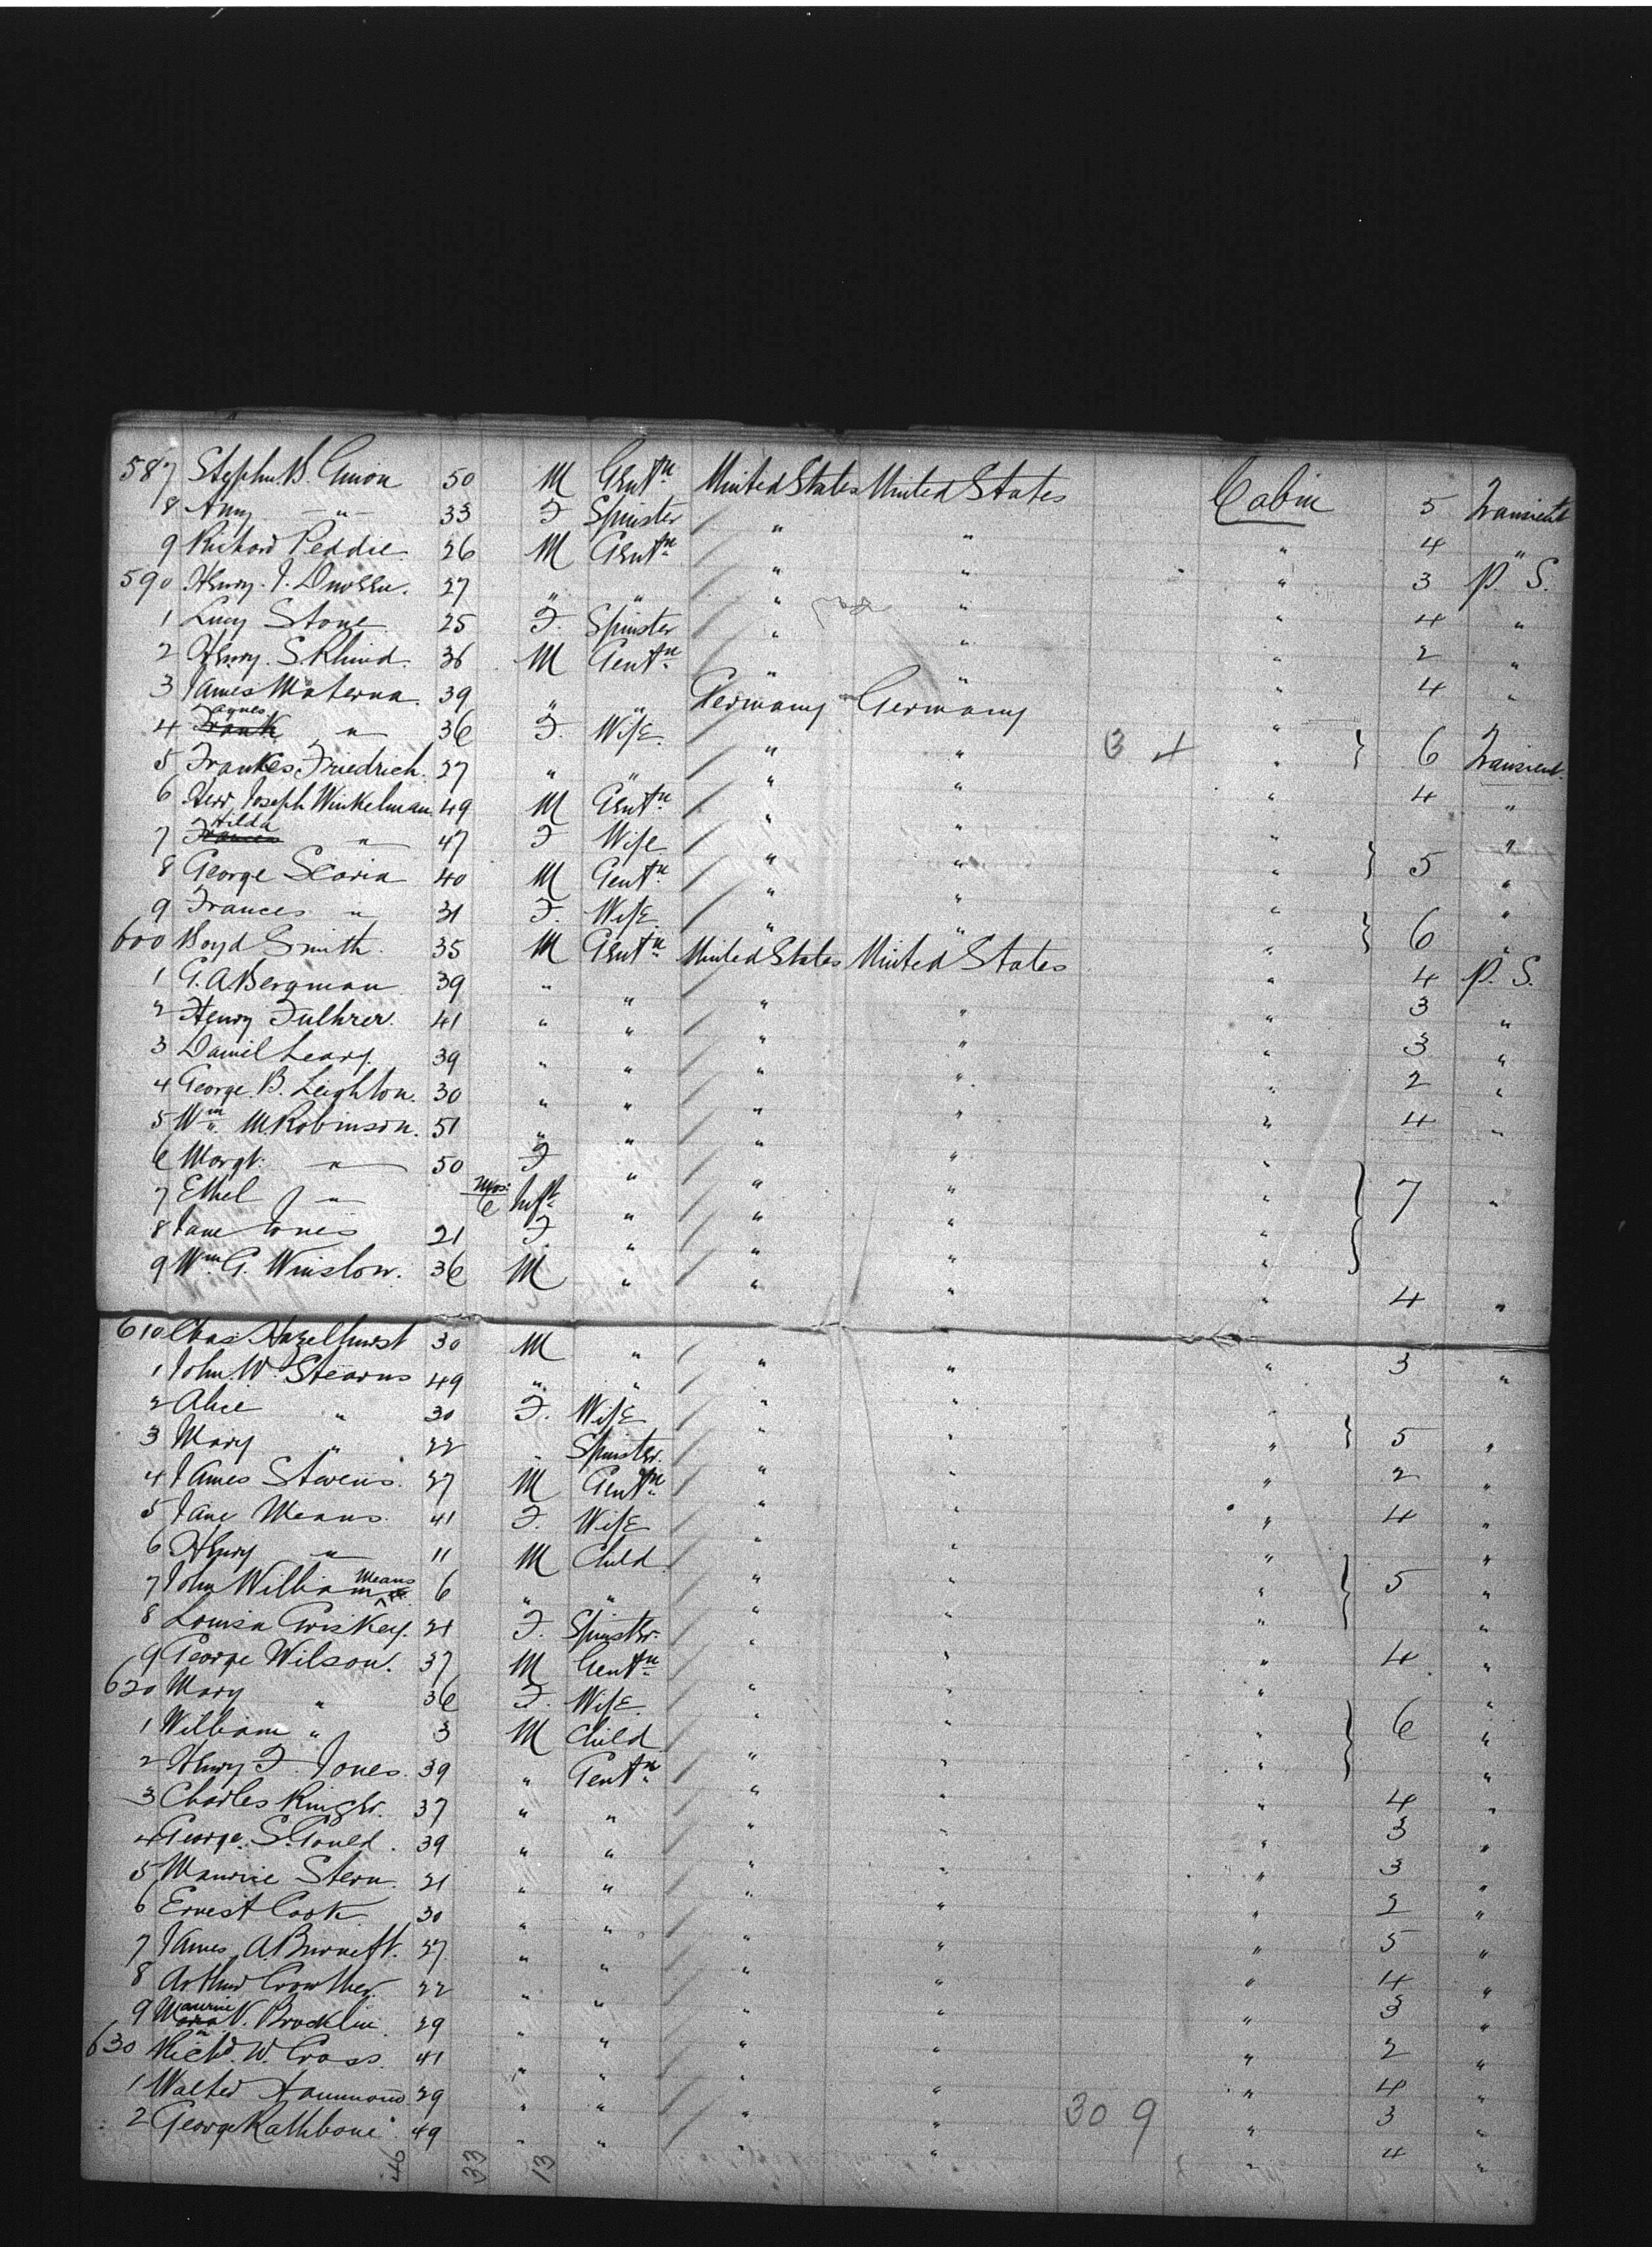 587 Stephen B. Guion 50 M Gentn United States United States Cabin 5 Transient
8 Amy — " — 33 F Spinster " " " 4 "
9 Richard Peddie 26 M Gentn " " " 3 P. S.
590 Henry. I. 27 " " " " " 4 "
1 Lucy Stone 25 F. Spinster " " " 2 "
2 Henry. S. Rhind. 36 M Gentn " " " 4 "
3 James Materna 39 " " Germany Germany "
4 Agnes " 36 F. Wife " " 3 + " } 6 Transient
5 Frankes Friedrich. 27 " " " " " 4 "
6 Herr Joseph Winkelman 49 M Gentn " " " "
7 Hilda " 47 F Wife " " " } 5 "
8 George Scoria 40 M Gentn " " " "
9 Frances " 31 F. Wife " " " } 6 "
600 Boyd Smith. 35 M Gentn United States United States " 4 P. S.
1 G. A Bergman 39 " " " " " 3 "
2 Henry Fulhrer. 41 " " " " " 3 "
3 Daniel Leary. 39 " " " " " 2 "
4 George. B. Leighton. 30 " " " " " 4 "
5 Wm. M Robinson. 51 " " " " "
6 Margt. " 50 F " " " " } 7 "
7 Ethel " Mos: 6 Inft " " " "
8 Jane Jones 21 F. " " " "
9 Wm. G. Winslow. 36 M " " " " 4 "
610 Chas. Hazelhurst 30 M " " " " 3 "
1 John. W. Stearns 49 " " " " "
2 Alice " 30 F. Wife " " " } 5 "
3 Mary " 22 " Spinster. " " " 2 "
4 James Stevens. 27 M Gentn " " " 4 "
5 Jane Means. 41 F. Wife " " " "
6 Henry " 11 M Child " " " } 5 "
7 John William Means 6 " " " " " "
8 Louisa Griskey. 21 F. Spinstr. " " " 4 "
9 George Wilson. 37 M Gentn " " " "
620 Mary " 36 F. Wife " " " } 6 "
1 William " 3 M Child " " " "
2 Henry F. Jones. 39 " Gentn " " " 4 "
3 Charles 37 " " " " " 3 "
4 George. S. Gould. 39 " " " " " 3 "
5 Maurice Stern. 21 " " " " " 2 "
6 Ernest Cook 30 " " " " " 5 "
7 James A. Burnett. 27 " " " " " 4 "
8 Arthur Crowther. 22 " " " " " 3 "
9 Maurice V. Brocklin 29 " " " " " 2 "
630 Richd. W. Cross. 41 " " " " " 4 "
1 Walter Hammond. 29 " " " " " 3 "
2 George Rathbone 49 " " " " 309 " 4 "
46 33 13